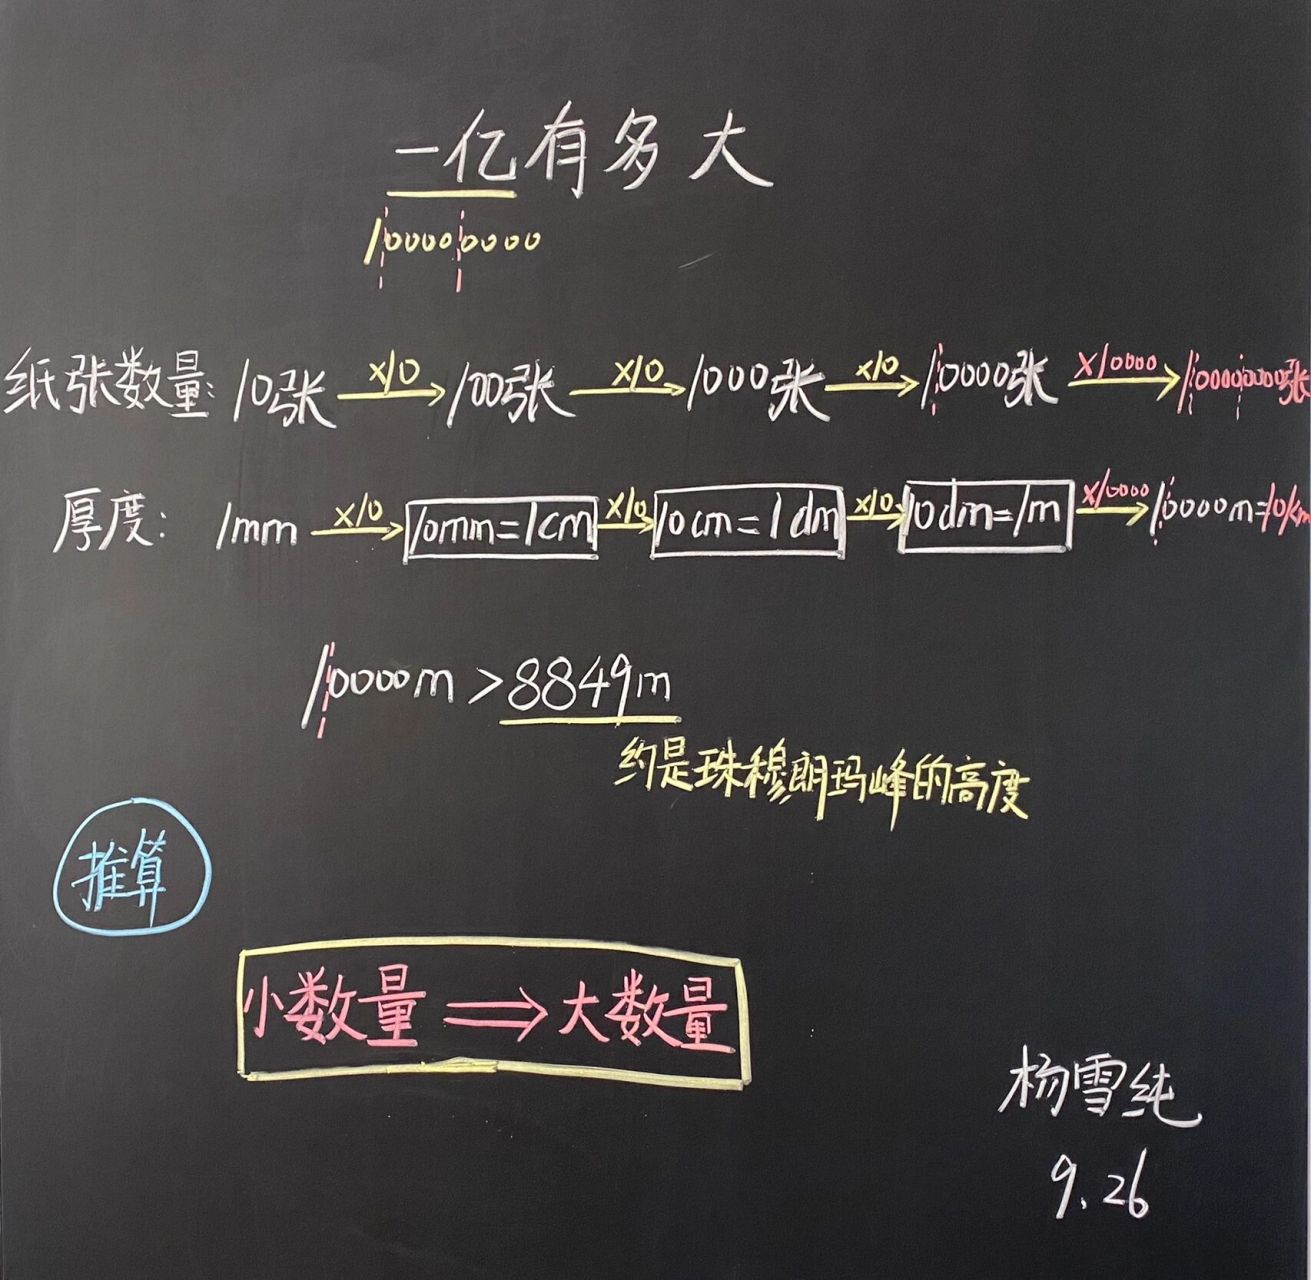 一亿有多大
100000000
纸张数量: 10张 ×10 100张 ×10 1000张 ×10 10000张 ×10000 100000000张
厚度: 1mm ×10 10mm=1cm ×10 10cm=1dm ×10 10dm=1m ×10000 10000m=10km
10000m>8849m
约是珠穆朗玛峰的高度
推算
小数量 ⇒ 大数量
杨雪纯
9.26